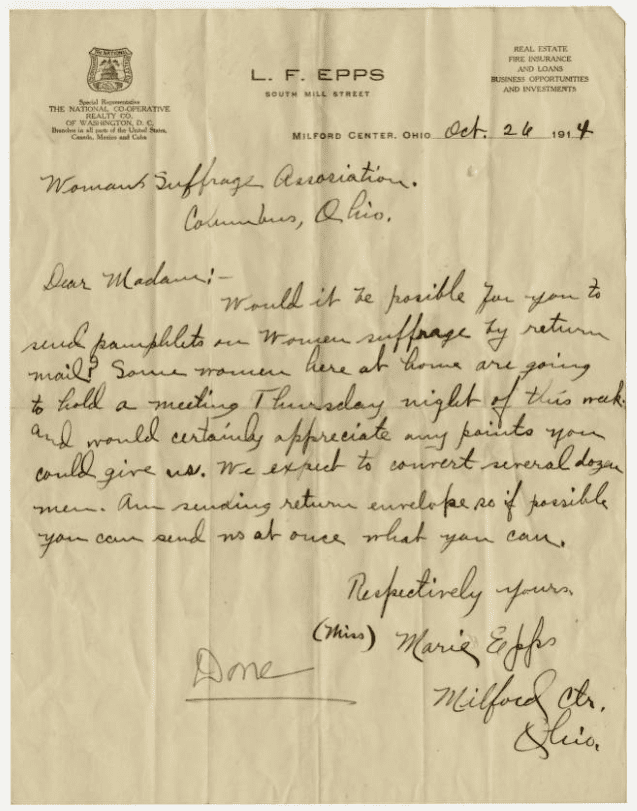 THE NATIONAL
Special Representative
THE NATIONAL CO-OPERATIVE
REALTY CO.
OF WASHINGTON, D. C.
Branches in all parts of the United States,
Canada, Mexico and Cuba
L. F. EPPS
SOUTH MILL STREET
REAL ESTATE
FIRE INSURANCE
AND LOANS
BUSINESS OPPORTUNITIES
AND INVESTMENTS
MILFORD CENTER, OHIO Oct. 26 1914
Woman's Suffrage Association.
Columbus, Ohio.
Dear Madam:-
Would it be posible for you to
send pamphlets on Women suffrage by return
mail? Some women here at home are going
to hold a meeting Thursday night of this week.
and would certainly appreciate any points you
could give us. We expect to convert several dozen
men. Am sending return envelope so if possible
you can send us at once what you can.
Respectively yours,
(Miss) Marie Epps
Milford Ctr.
Ohio.
Done